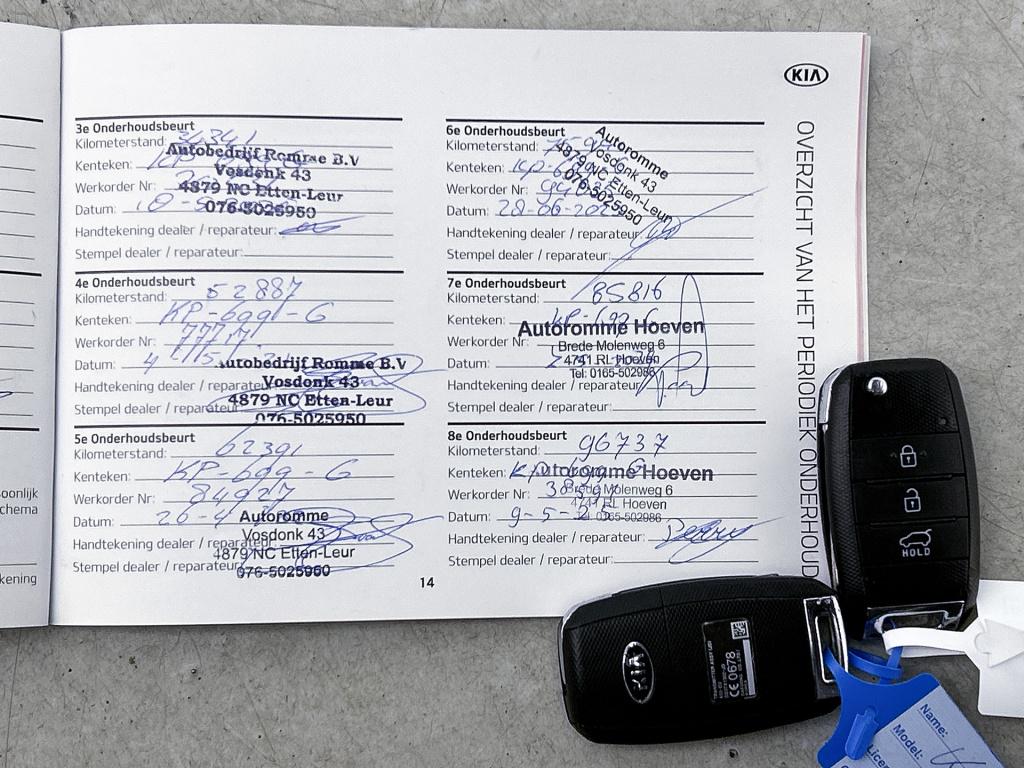 KIA
OVERZICHT VAN HET PERIODIEK ONDERHOUD
3e Onderhoudsbeurt
Kilometerstand: 34341
Kenteken:
Autobedrijf Romme B.V
Vosdonk 43
Werkorder Nr:
4879 NC Etten-Leur
Datum: 10-5
076-5025950
Handtekening dealer / reparateur:
Stempel dealer / reparateur:
4e Onderhoudsbeurt
Kilometerstand: 52887
Kenteken: KP-699-G
Werkorder Nr:
Datum: 4
Autobedrijf Romme B.V
Handtekening dealer / reparateur:
Vosdonk 43
4879 NC Etten-Leur
Stempel dealer / reparateur:
076-5025950
5e Onderhoudsbeurt
Kilometerstand: 62391
Kenteken: KP-699-G
Werkorder Nr: 84927
Datum: 26-4
Autoromme
Vosdonk 43
Handtekening dealer / reparateur:
4879 NC Etten-Leur
Stempel dealer / reparateur:
076-5025950
6e Onderhoudsbeurt
Kilometerstand:
Kenteken:
Werkorder Nr:
Datum: 28-06-20
Autoromme
Vosdonk 43
4879 NC Etten-Leur
076-5025950
Handtekening dealer / reparateur:
Stempel dealer / reparateur:
7e Onderhoudsbeurt
Kilometerstand: 85816
Kenteken: KP-699-G
Autoromme Hoeven
Werkorder Nr:
Brede Molenweg 6
Datum:
4741 RL Hoeven
Tel: 0165-502986
Handtekening dealer / reparateur:
Stempel dealer / reparateur:
8e Onderhoudsbeurt
Kilometerstand: 96737
Kenteken:
Autoromme Hoeven
Werkorder Nr:
Brede Molenweg 6
4741 RL Hoeven
Datum: 9-5-25
Tel: 0165-502986
Handtekening dealer / reparateur:
Stempel dealer / reparateur:
14
oonlijk
chema
kening
HOLD
KIA
CE 0678
Name:
Model: